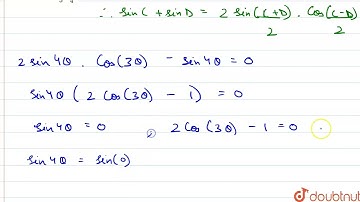 ∴ sin C + sin D = 2 sin (C+D)/2 . cos (C-D)/2
2 sin 4θ . cos(3θ) - sin 4θ = 0
sin 4θ ( 2 cos(3θ) - 1 ) = 0
sin 4θ = 0 , 2 cos(3θ) - 1 = 0 .
sin 4θ = sin(0)
doubtnut